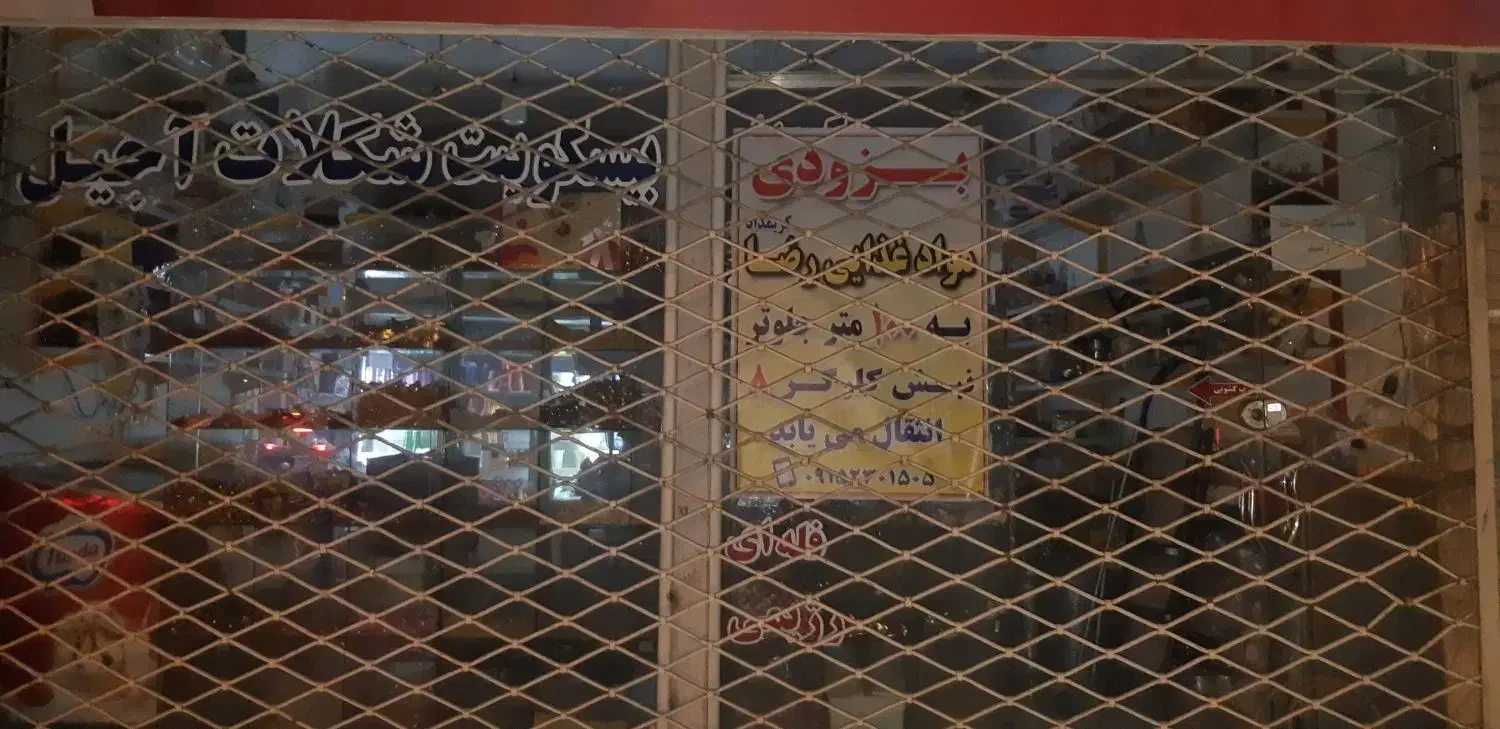 بیسکوئیت شکلات آجیل
بزودی
گریمداد
مواد غذایی رضا
به ۱۰۰ متر جلوتر
نبش کارگر ۸
انتقال می یابد
۰۹۱۵۲۳۰۱۵۰۵
فله ای